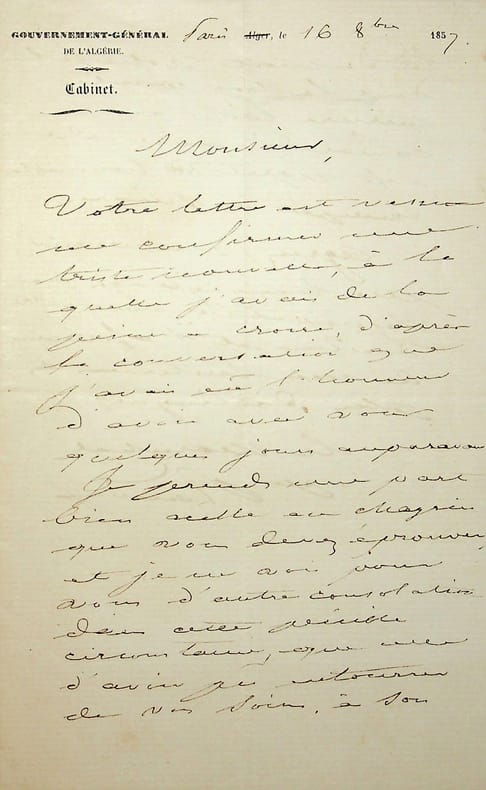 GOUVERNEMENT-GÉNÉRAL
DE L'ALGÉRIE.
Cabinet.
Paris Alger, le 16 8bre 1857.
Monsieur,
Votre lettre est venue
me confirmer une
triste nouvelle, à la
quelle j'avais de la
peine a croire, d'après
la conversation que
j'avais eu l'honneur
d'avoir avec vous
quelques jours auparavant
Je prends une part
bien réelle au chagrin
que vous devez éprouver,
et je ne vois pour
vous d'autre consolation
dans cette pénible
circonstance, que celle
d'avoir pu
de vos soins, à son